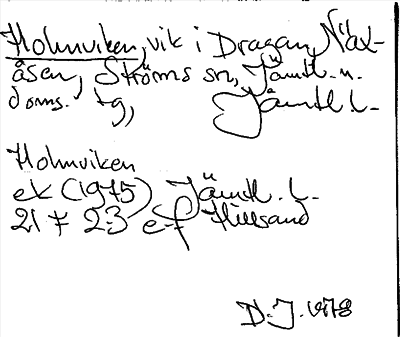 Holmviken, vik i Dragan, Näx-
åsen, Ströms sn, Jämtl. n.
doms. tg, Jämtl. l.
Holmviken
ek (1975) Jämtl. L.
21 F 23 e-f Hillsand
D.J. 1978